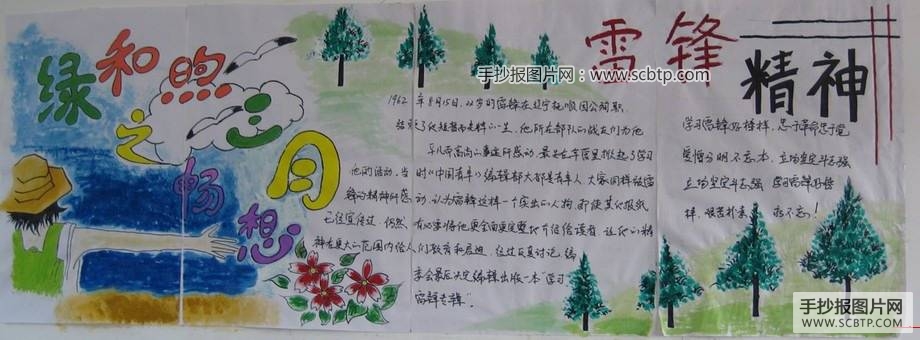 绿和煦之三月畅想
雷锋
精神
手抄报图片网：www.scbtp.com
1962年8月15日，22岁的雷锋在辽宁抚顺因公殉职
结束了他短暂而光辉的一生，他所在部队的战友们为他
平凡而高尚的事迹所感动
时《中国青年》编辑部大都是青年人，大家同样被雷
动，认为雷锋这样一个突出的人物，即使其他报纸
有必要将他更全面更完整
们教育和启迪，经过反复讨论，编
委会最后决定编辑出版一本“学习
雷锋专辑”。
他的活动，当
锋的精神所感
已经宣传过，仍然
神在更大的范围内给人
学习雷锋好榜样，忠于革命忠于党
爱憎分明不忘本，立场坚定斗志强
立场坚定斗志强 学习雷锋好榜
样，艰苦朴素 永不忘！
手抄报图片网
WWW.SCBTP.COM